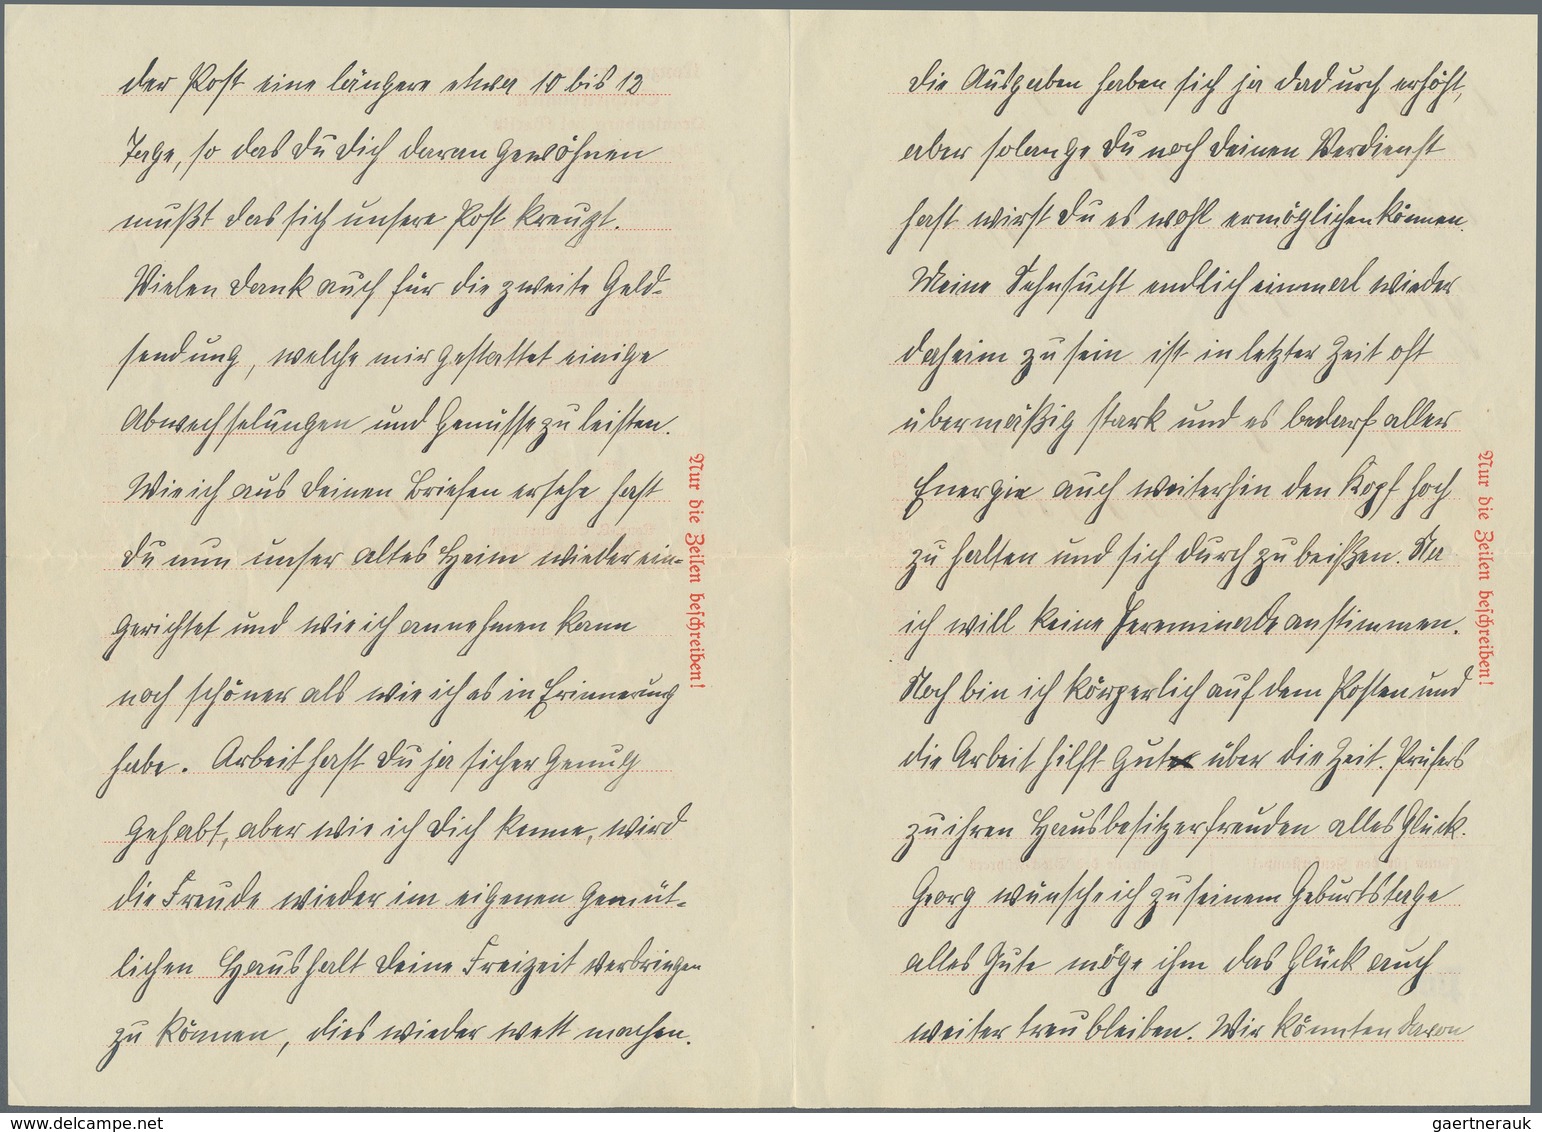 der Post eine längere etwa 10 bis 12
Tage, so das Du Dich daran gewöhnen
mußt das sich unsere Post kreuzt.
Vielen Dank auch für die zweite Geld-
sendung, welche mir gestattet einige
Abwechselungen und Genüsse zu leisten.
Wie ich aus Deinen Briefen ersehe hast
Du nun unser altes Heim wieder ein-
gerichtet und wie ich annehmen kann
noch schöner als wie ich es in Erinnerung
habe. Arbeit hast Du ja sicher genug
gehabt, aber wie ich Dich kenne, wird
die Freude wieder im eigenen gemüt-
lichen Haushalt Deine Freizeit verbringen
zu können, dies wieder wett machen.
Nur die Zeilen beschreiben!
Die Ausgaben haben sich ja dadurch erhöht,
aber solange Du noch Deinen Verdienst
hast wirst Du es wohl ermöglichen können.
Meine Sehnsucht endlich einmal wieder
daheim zu sein ist in letzter Zeit oft
übermäßig stark und es bedarf aller
Energie auch weiterhin den Kopf hoch
zu halten und sich durch zu beißen. Na
ich will keine Jereminade anstimmen.
Noch bin ich körperlich auf dem Posten und
die Arbeit hilft gut über die Zeit. Prüfers
zu ihren Hausbesitzerfreuden alles Glück.
Georg wünsche ich zu seinem Geburtstage
alles Gute möge ihm das Glück auch
weiter treu bleiben. Wir könnten davon
Nur die Zeilen beschreiben!
delcampe.net
gaertnerauk